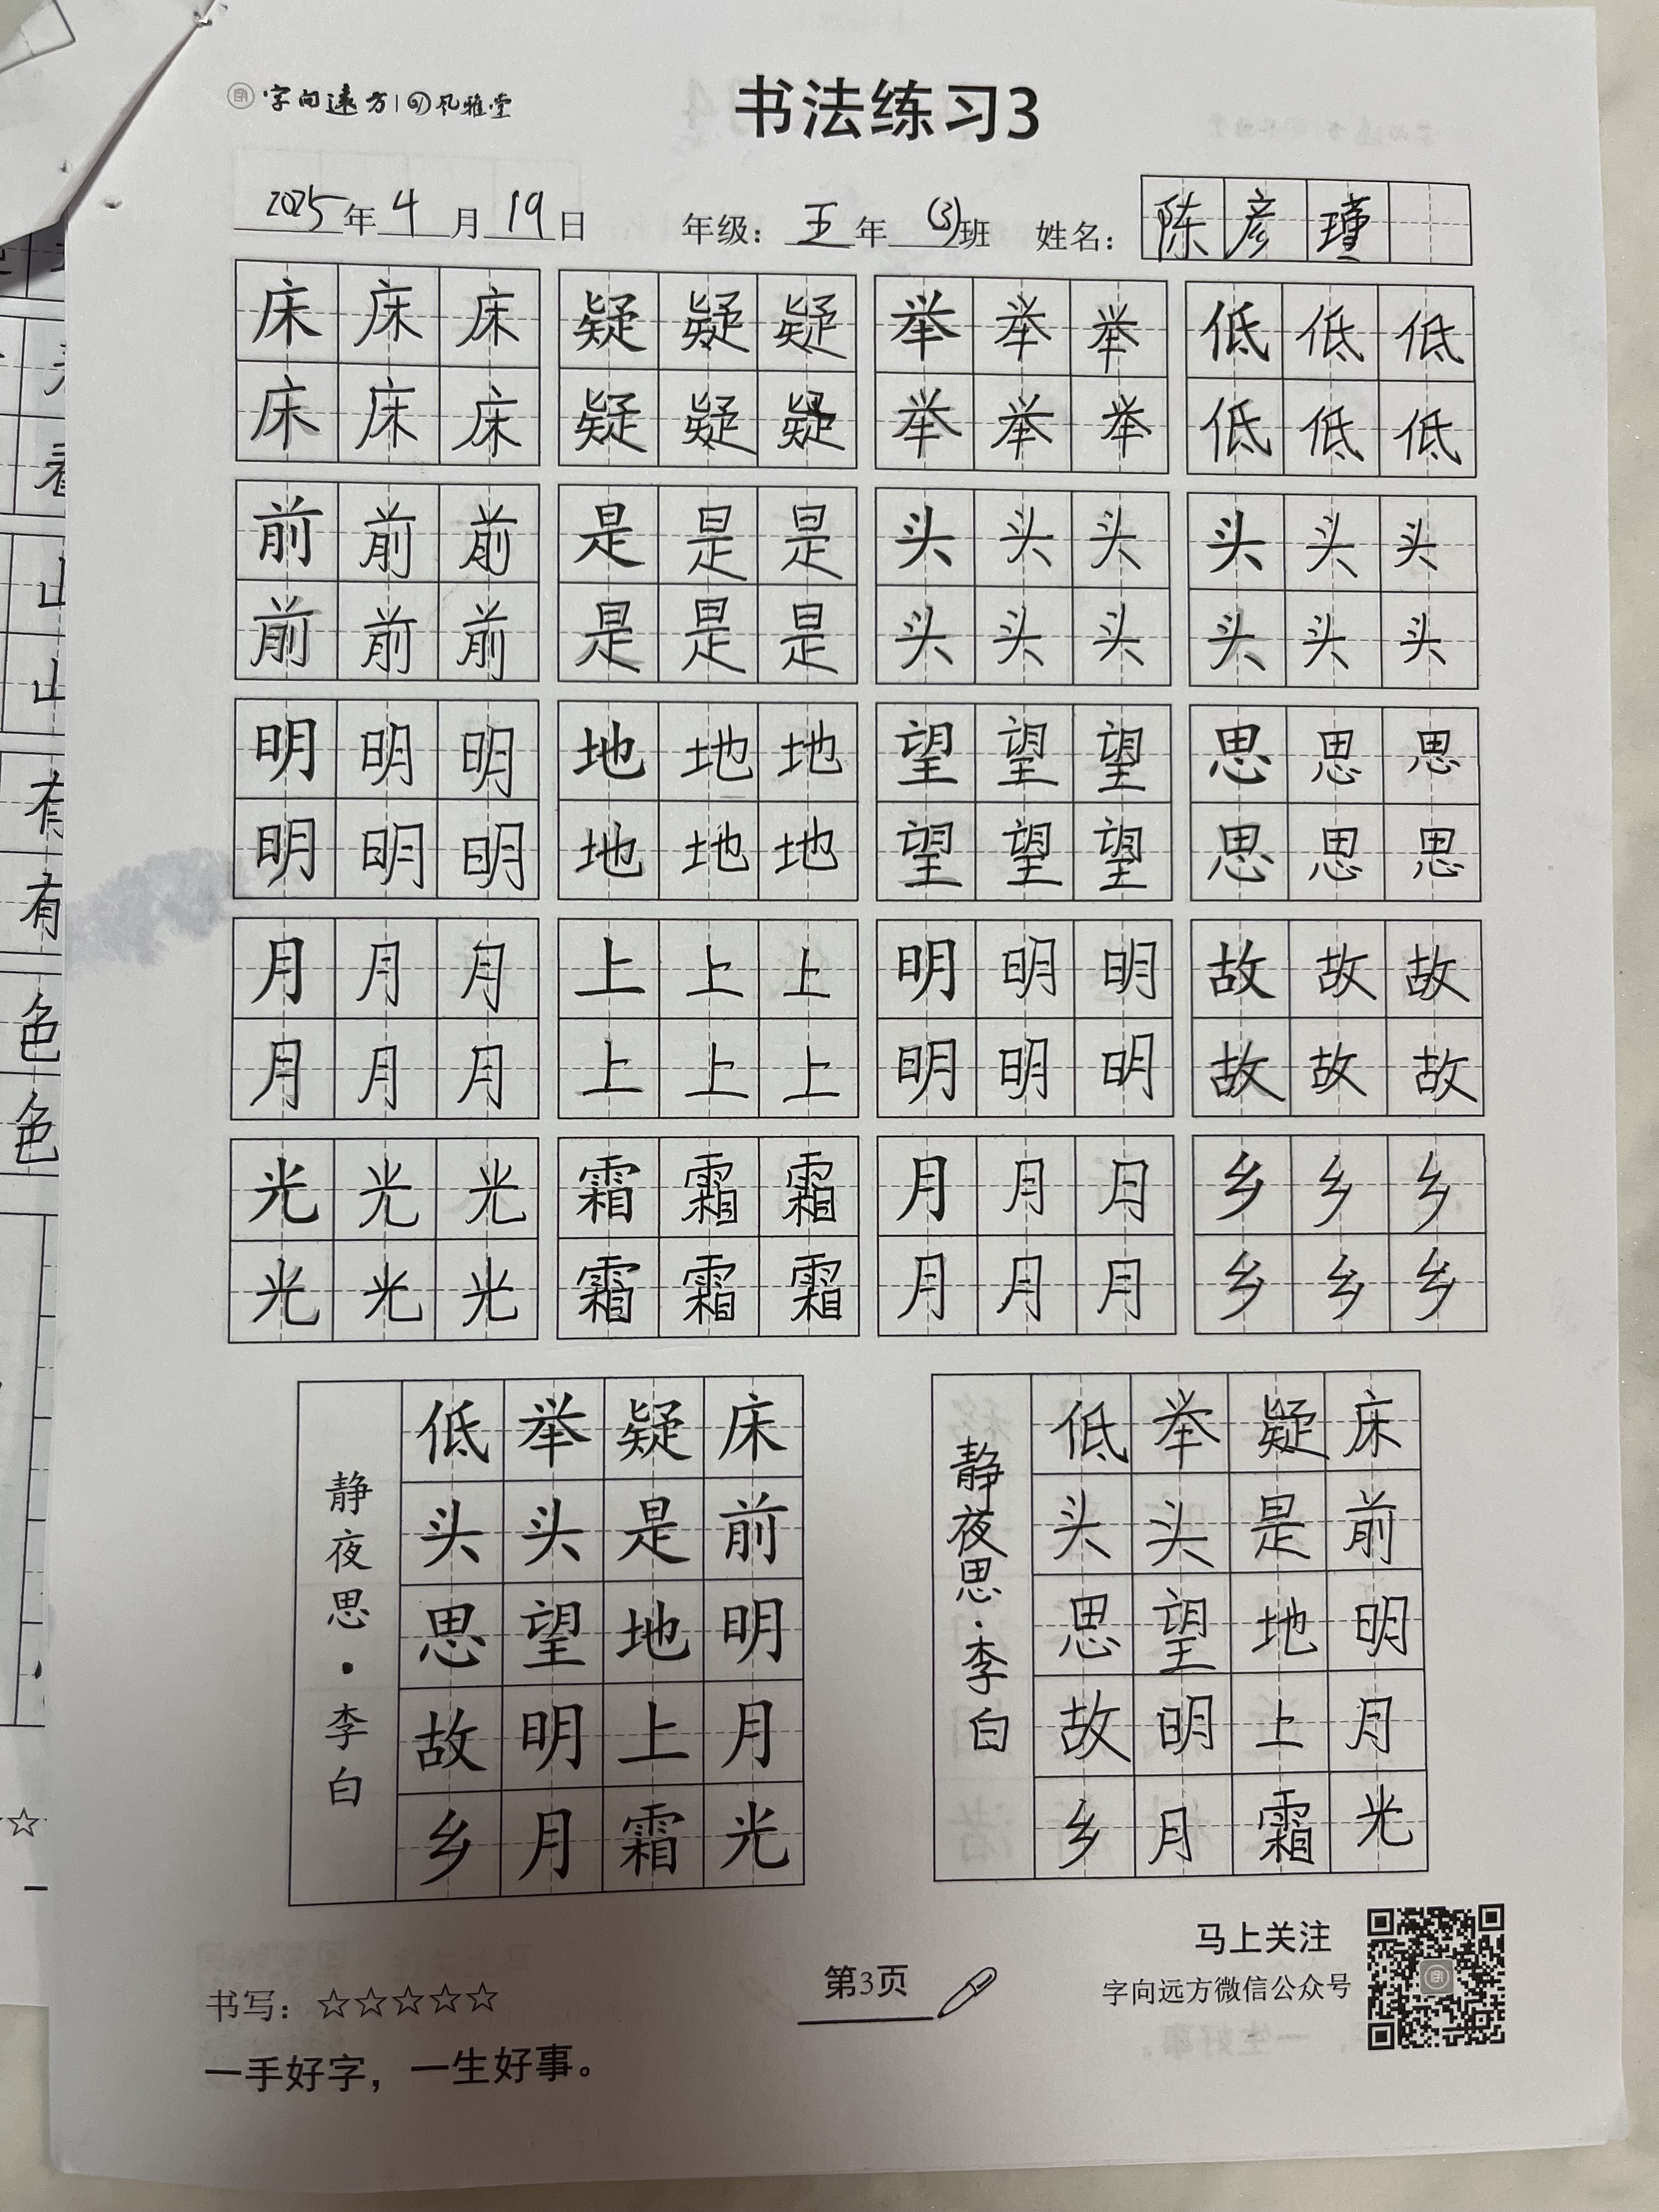 字向远方 风雅堂
书法练习3
2025年4月19日 年级：五年(3)班 姓名：陈彦瑾
床床床 疑疑疑 举举举 低低低
床床床 疑疑疑 举举举 低低低
前前前 是是是 头头头 头头头
前前前 是是是 头头头 头头头
明明明 地地地 望望望 思思思
明明明 地地地 望望望 思思思
月月月 上上上 明明明 故故故
月月月 上上上 明明明 故故故
光光光 霜霜霜 月月月 乡乡乡
光光光 霜霜霜 月月月 乡乡乡
床前明月光
疑是地上霜
举头望明月
低头思故乡
静夜思·李白
床前明月光
疑是地上霜
举头望明月
低头思故乡
静夜思·李白
书写：☆☆☆☆☆
一手好字，一生好事。
第3页
马上关注
字向远方微信公众号
看
山
山
有
有
色
色